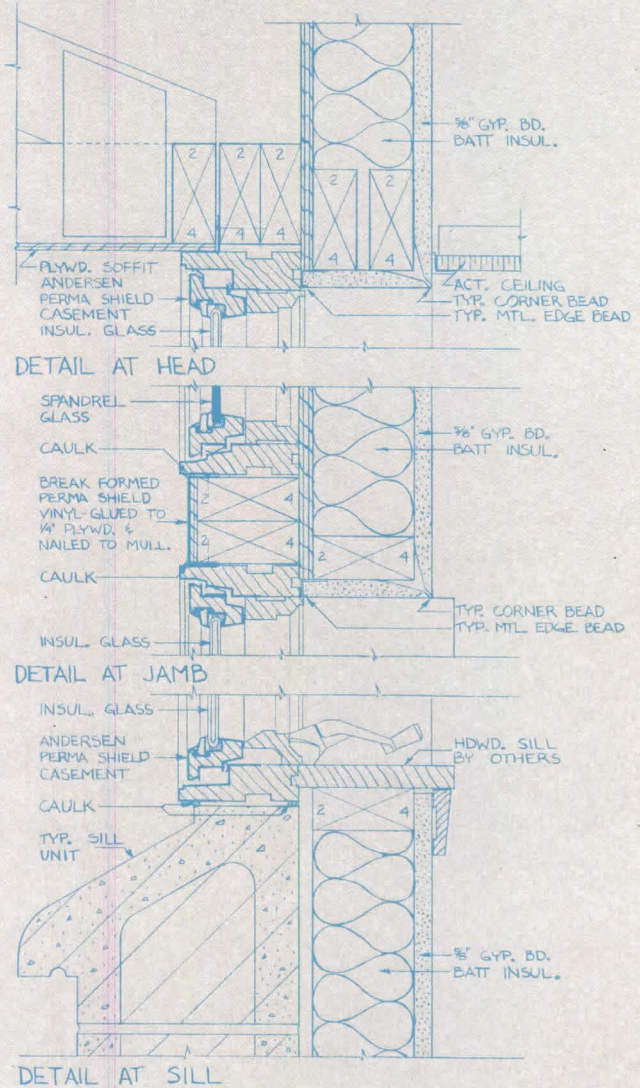 2 2 2
4 4 4
5/8" GYP. BD.
BATT INSUL.
PLYWD. SOFFIT
ANDERSEN
PERMA SHIELD
CASEMENT
INSUL. GLASS
ACT. CEILING
TYP. CORNER BEAD
TYP. MTL. EDGE BEAD
DETAIL AT HEAD
SPANDREL
GLASS
CAULK
BREAK FORMED
PERMA SHIELD
VINYL-GLUED TO
1/4" PLYWD. &
NAILED TO MULL.
CAULK
INSUL. GLASS
2 4
2 4
2 4
5/8" GYP. BD.
BATT INSUL.
TYP. CORNER BEAD
TYP. MTL. EDGE BEAD
DETAIL AT JAMB
INSUL. GLASS
ANDERSEN
PERMA SHIELD
CASEMENT
CAULK
TYP. SILL
UNIT
HDWD. SILL
BY OTHERS
2 4
5/8" GYP. BD.
BATT INSUL.
DETAIL AT SILL